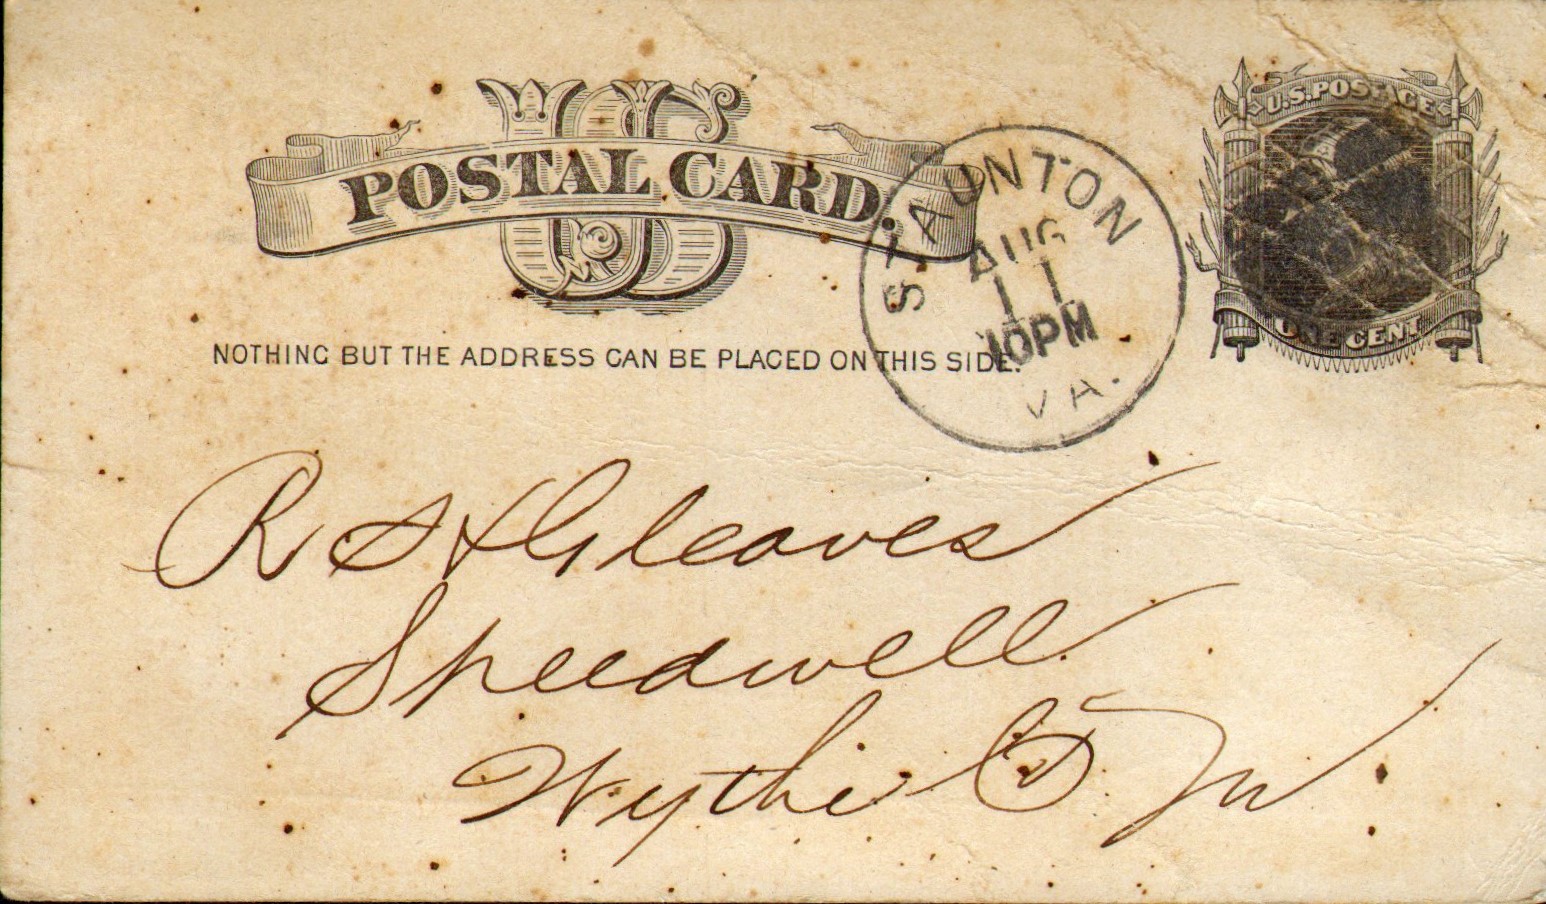 US
POSTAL CARD.
NOTHING BUT THE ADDRESS CAN BE PLACED ON THIS SIDE.
STAUNTON
AUG
11
10PM
VA.
U.S. POSTAGE
ONE CENT
R S Gleaves
Speedwell
Wythe Co